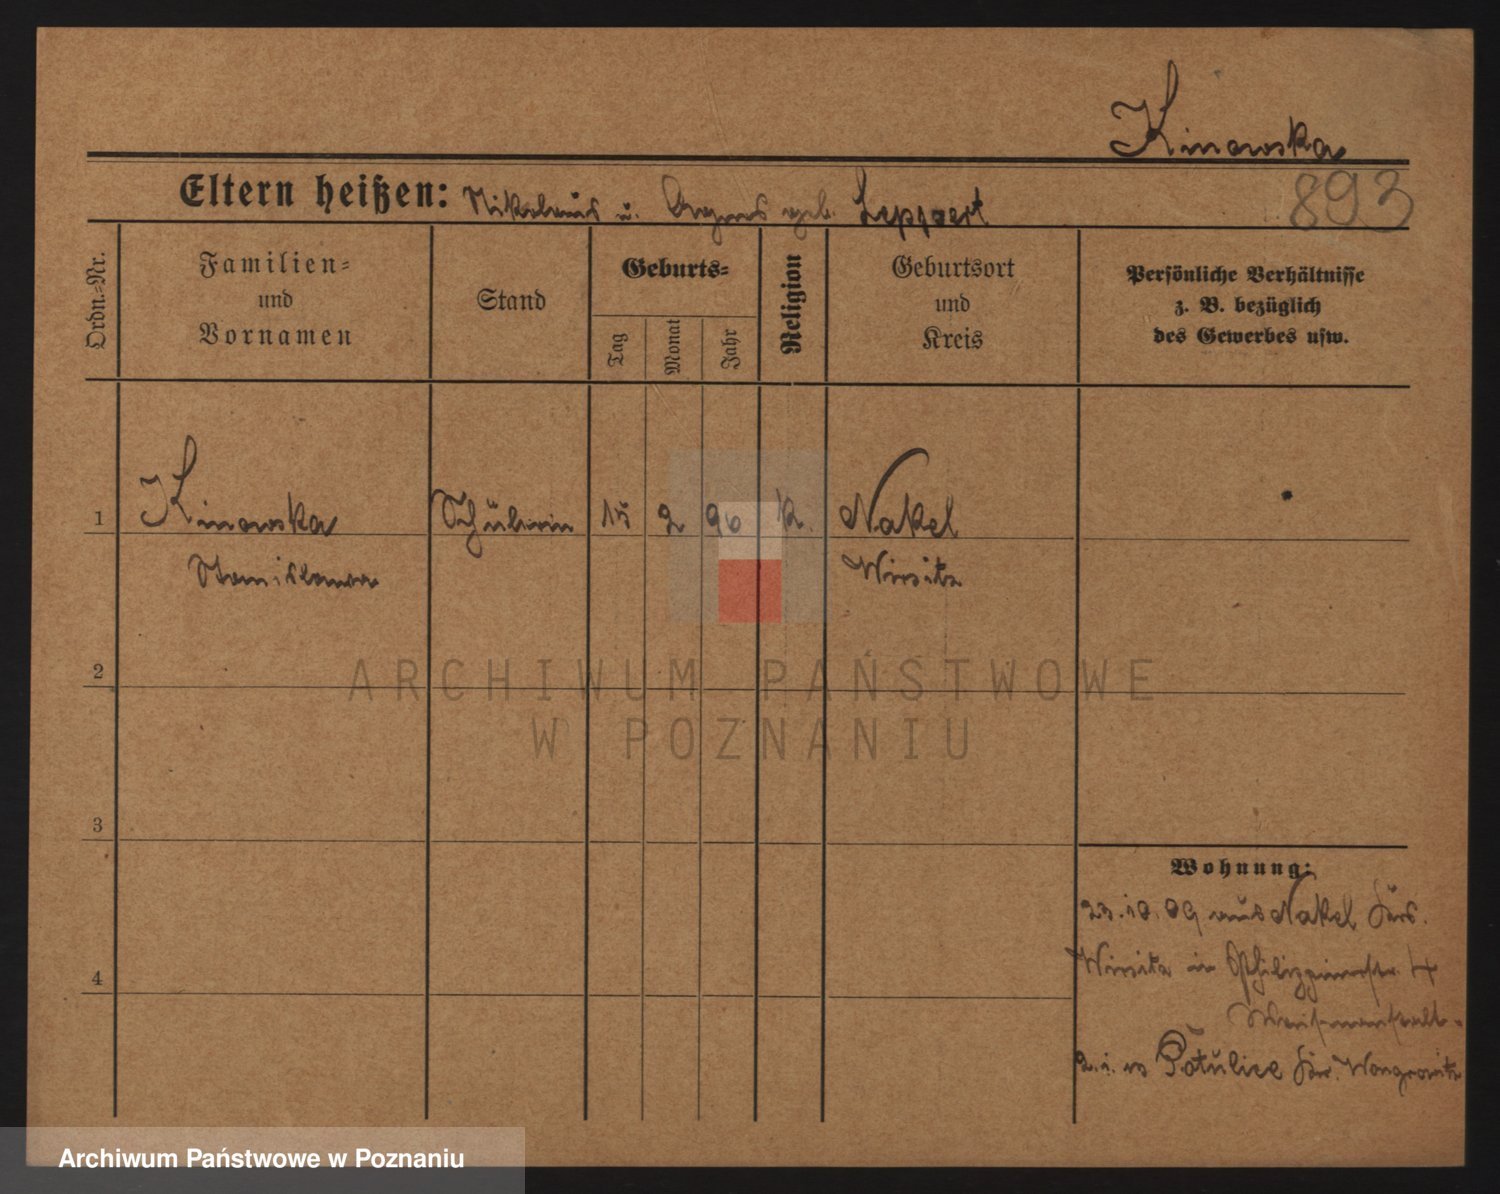 Kinowska
893
Eltern heißen: Nikolaus u. Agnes geb. Leppert
Ordn.-Nr.
Familien-
und
Vornamen
Stand
Geburts-
Tag
Monat
Jahr
Religion
Geburtsort
und
Kreis
Persönliche Verhältnisse
z. B. bezüglich
des Gewerbes usw.
1 Kinowska Schülerin 15 2 96 k. Nakel
Stanislawa Wirsitz
2
3
4
Wohnung:
23.10.09 aus Nakel Krs.
Wirsitz in Philippinenstr. 4
Potulice Kr. Wongrowitz
ARCHIWUM PAŃSTWOWE
W POZNANIU
Archiwum Państwowe w Poznaniu